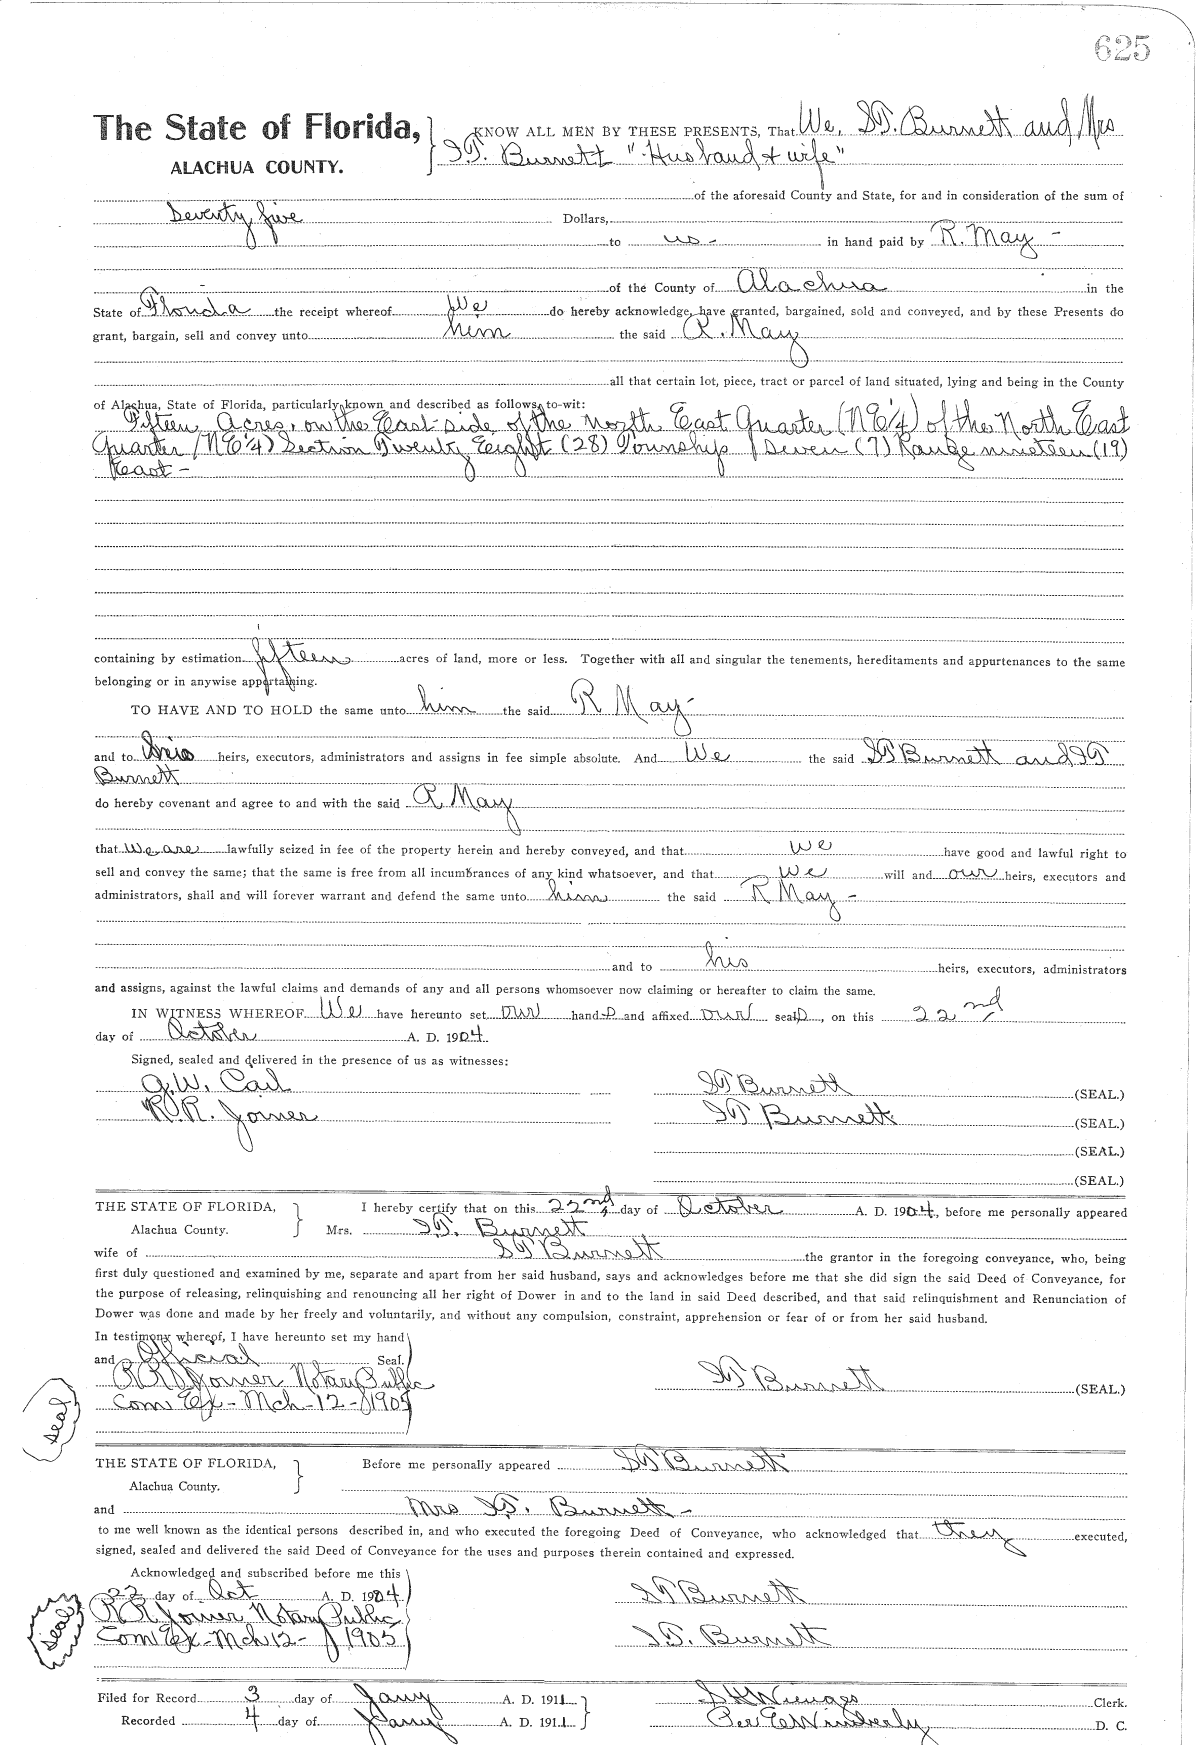 625
The State of Florida,
ALACHUA COUNTY.
KNOW ALL MEN BY THESE PRESENTS, That We, Burnett and Mrs
Burnett "Husband & wife"
of the aforesaid County and State, for and in consideration of the sum of
Seventy five Dollars,
to us - in hand paid by R. May -
of the County of Alachua in the
State of Florida the receipt whereof We do hereby acknowledge, have granted, bargained, sold and conveyed, and by these Presents do
grant, bargain, sell and convey unto him the said R. May
all that certain lot, piece, tract or parcel of land situated, lying and being in the County
of Alachua, State of Florida, particularly known and described as follows, to-wit:
Fifteen Acres, on the East side of the north East Quarter (NE¼) of the North East
Quarter (NE¼) Section Twenty Eight (28) Township Seven (7) Range nineteen (19)
East -
containing by estimation fifteen acres of land, more or less. Together with all and singular the tenements, hereditaments and appurtenances to the same
belonging or in anywise appertaining.
TO HAVE AND TO HOLD the same unto him the said R May -
and to his heirs, executors, administrators and assigns in fee simple absolute. And We the said Burnett and
Burnett
do hereby covenant and agree to and with the said R May
that we are lawfully seized in fee of the property herein and hereby conveyed, and that we have good and lawful right to
sell and convey the same; that the same is free from all incumbrances of any kind whatsoever, and that we will and our heirs, executors and
administrators, shall and will forever warrant and defend the same unto him the said R May -
and to his heirs, executors, administrators
and assigns, against the lawful claims and demands of any and all persons whomsoever now claiming or hereafter to claim the same.
IN WITNESS WHEREOF We have hereunto set our hands and affixed our seals, on this 22nd
day of October A. D. 1904.
Signed, sealed and delivered in the presence of us as witnesses:
Burnett (SEAL.)
R.R. Joiner Burnett (SEAL.)
(SEAL.)
(SEAL.)
THE STATE OF FLORIDA,
Alachua County.
I hereby certify that on this 22nd day of October A. D. 1904, before me personally appeared
Mrs. Burnett
wife of Burnett the grantor in the foregoing conveyance, who, being
first duly questioned and examined by me, separate and apart from her said husband, says and acknowledges before me that she did sign the said Deed of Conveyance, for
the purpose of releasing, relinquishing and renouncing all her right of Dower in and to the land in said Deed described, and that said relinquishment and Renunciation of
Dower was done and made by her freely and voluntarily, and without any compulsion, constraint, apprehension or fear of or from her said husband.
In testimony whereof, I have hereunto set my hand
and Official Seal.
R R Joiner Notary Public Burnett (SEAL.)
Com Ex - Mch - 12 - 1905
seal
THE STATE OF FLORIDA,
Alachua County.
Before me personally appeared Burnett
and Mrs Burnett -
to me well known as the identical persons described in, and who executed the foregoing Deed of Conveyance, who acknowledged that they executed,
signed, sealed and delivered the said Deed of Conveyance for the uses and purposes therein contained and expressed.
Acknowledged and subscribed before me this
22 day of Oct A. D. 1904 Burnett
R R Joiner Notary Public
Com Ex - Mch 12 - 1905 Burnett
seal
Filed for Record 3 day of Jany A. D. 1911 Clerk.
Recorded 4 day of Jany A. D. 1911 Per E Wimberly D. C.